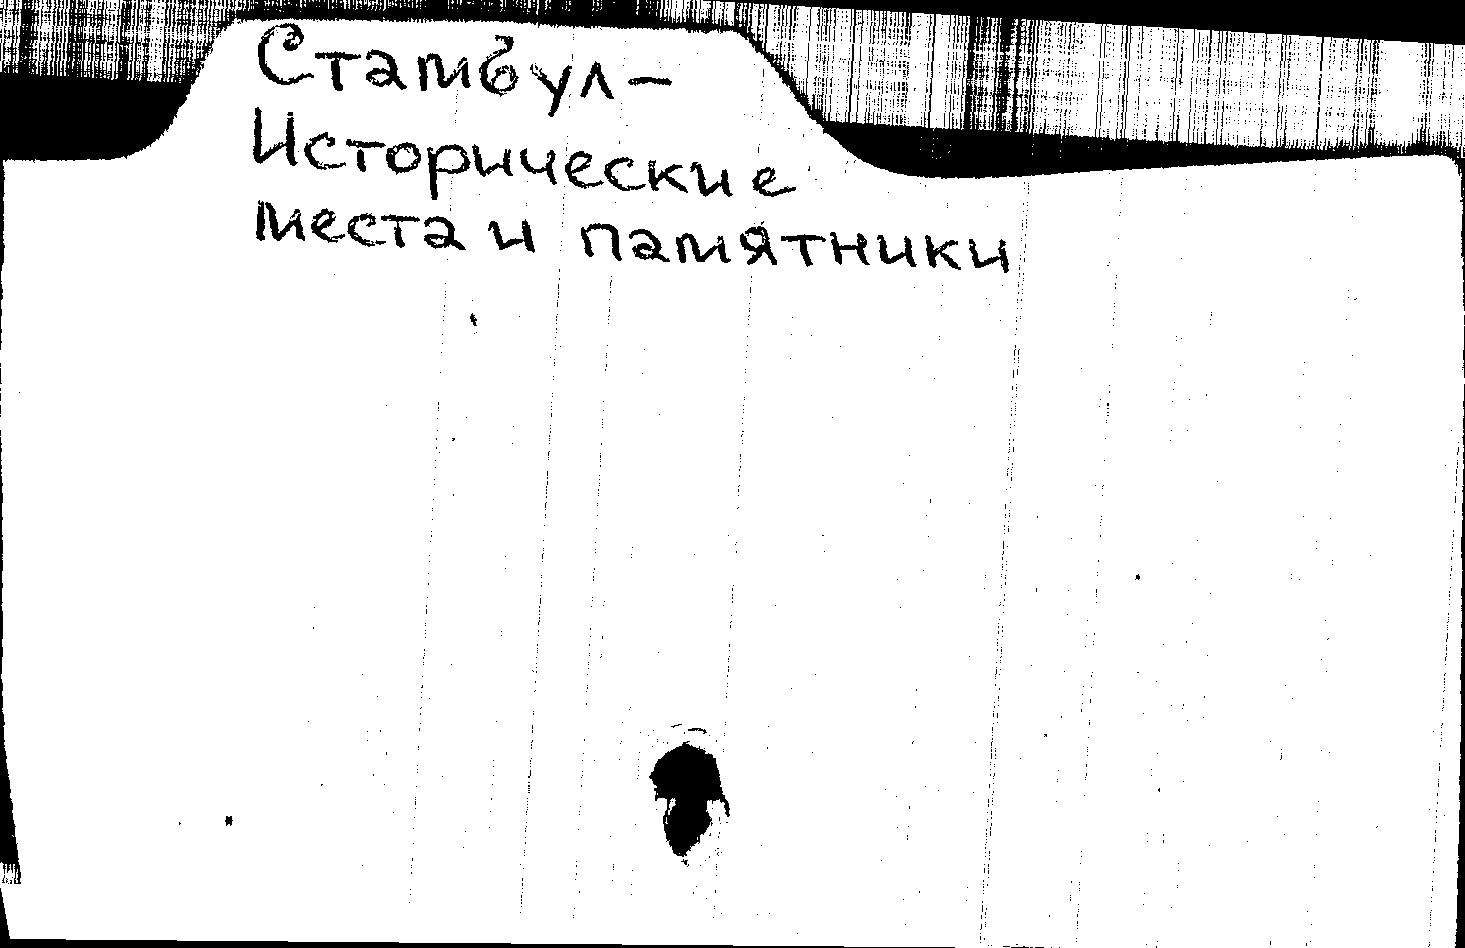 Стамбул -
Исторические
места и памятники